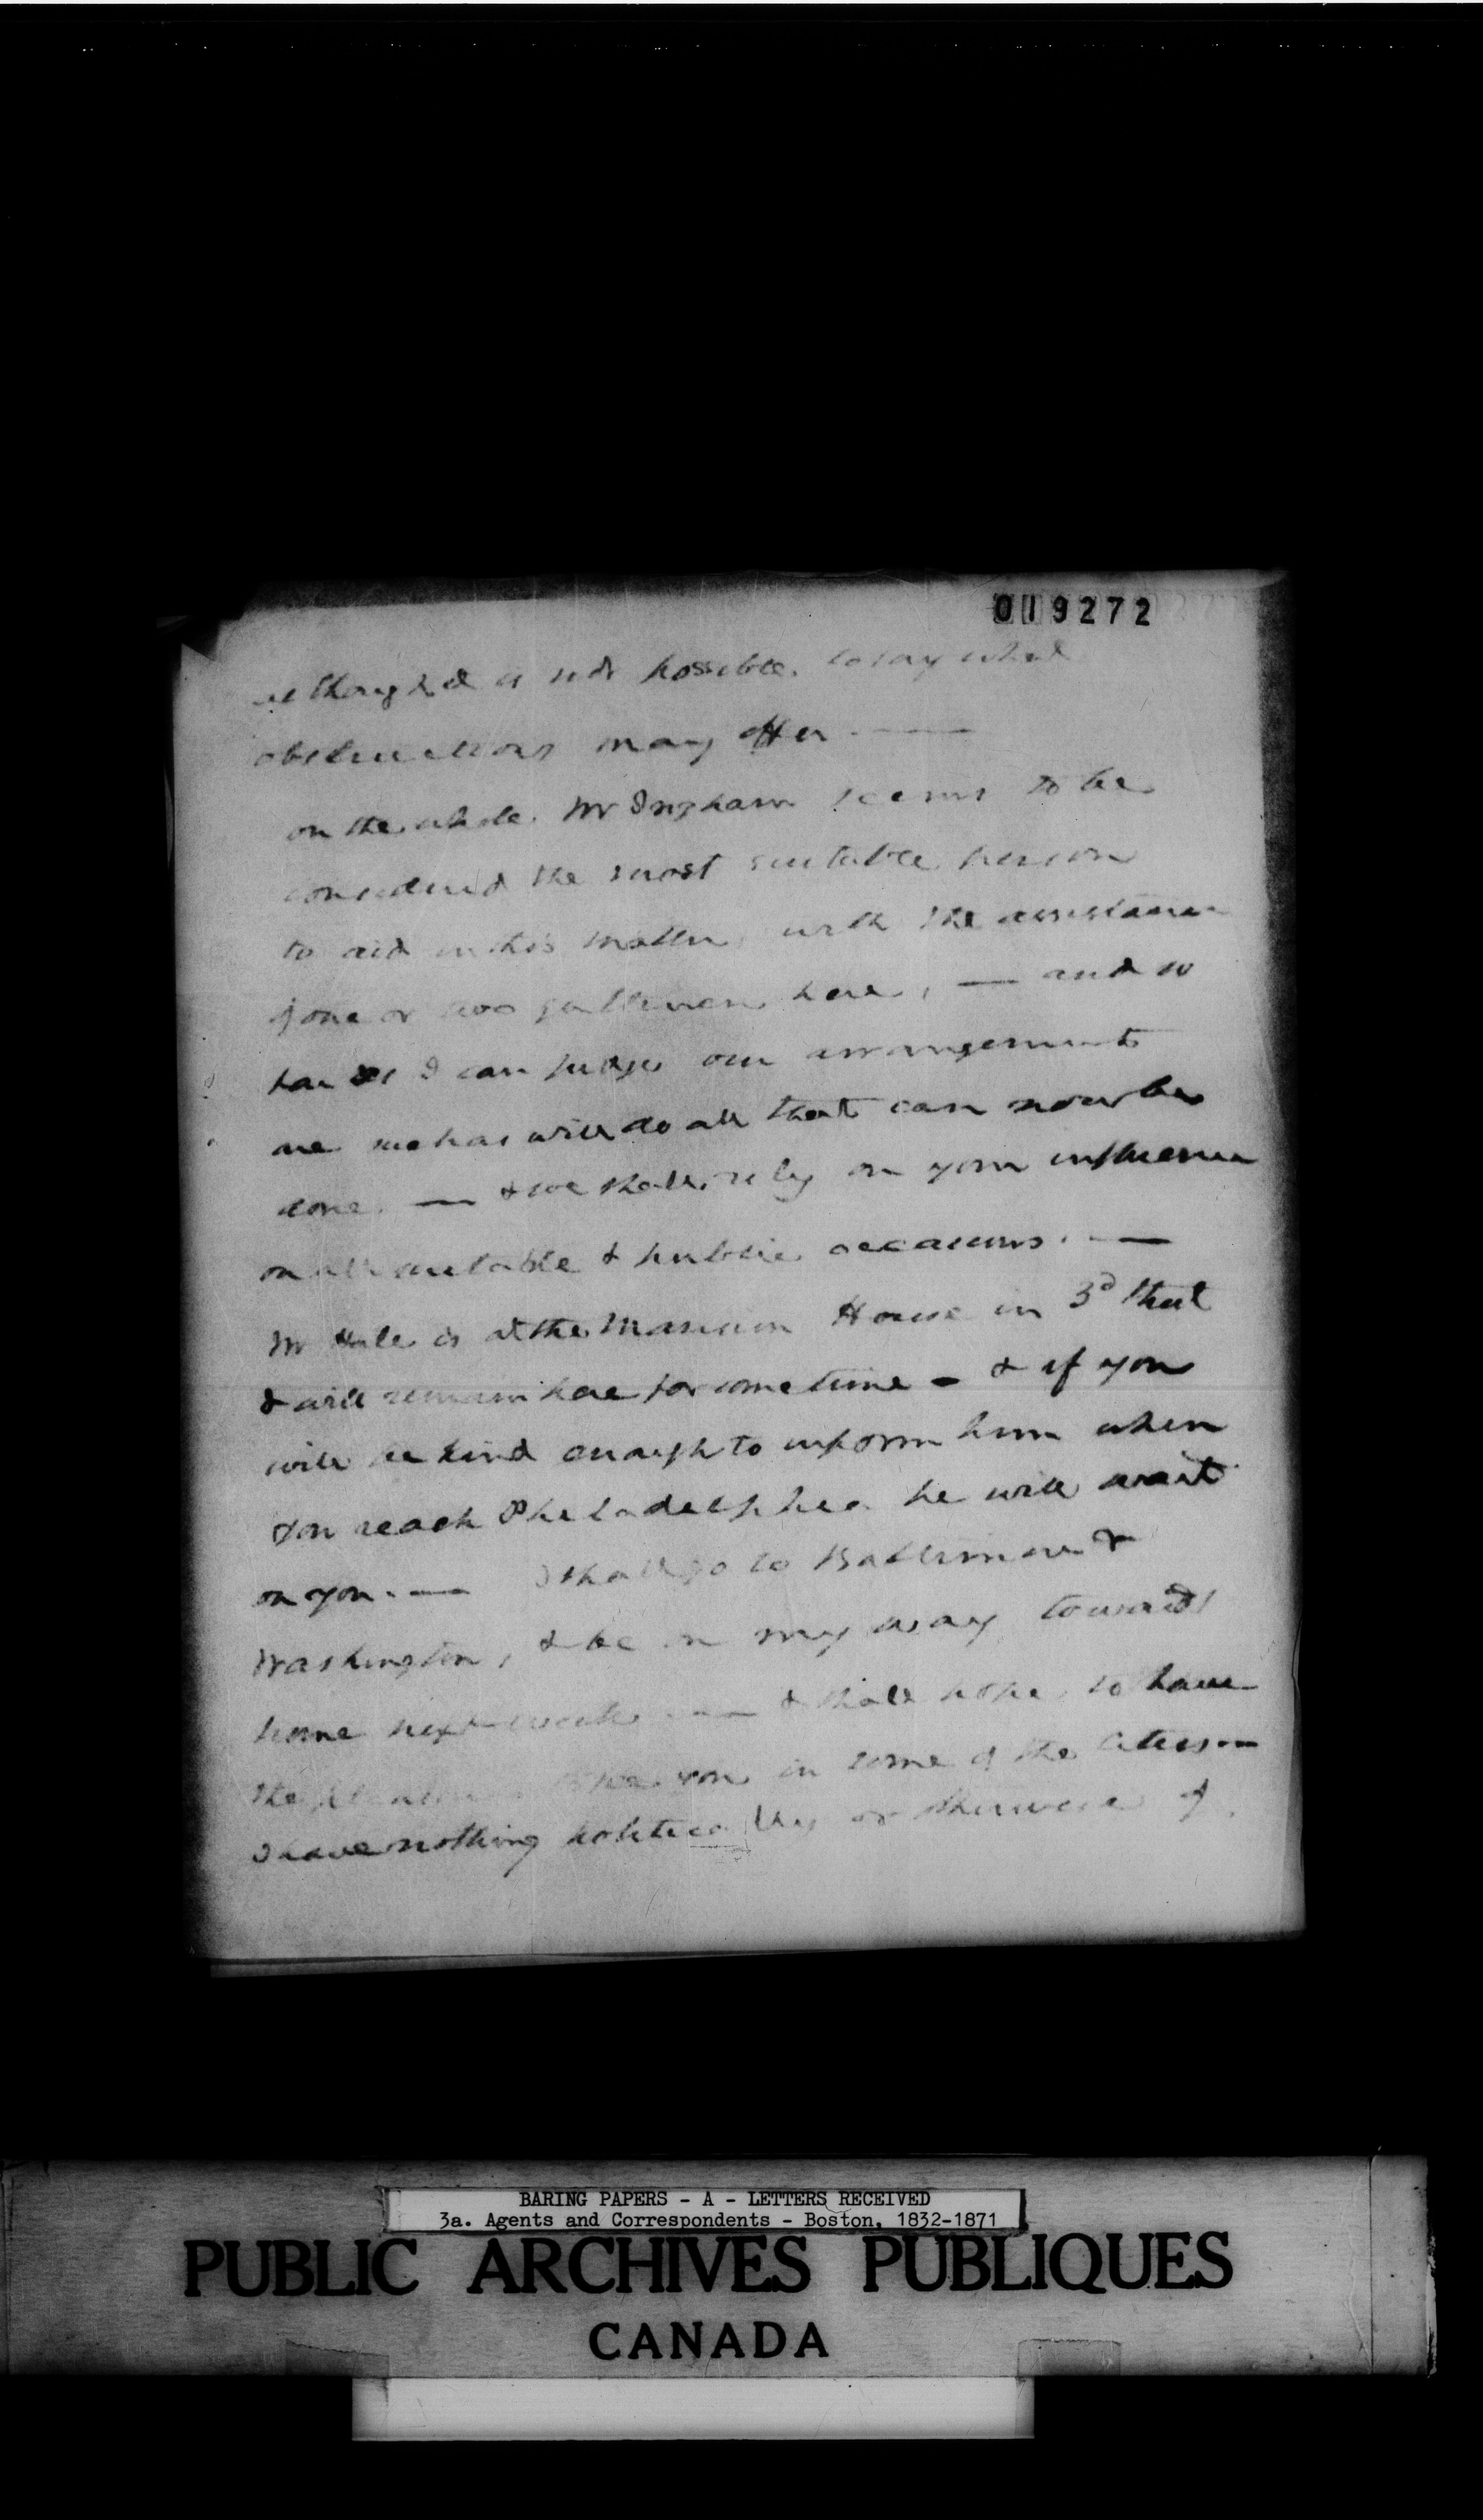 019272
although it is not possible to say what
obstructions may offer —
on the whole Mr Ingham seems to be
considered the most suitable person
to aid in this matter, with the assistance
of one or two gentlemen here, — and so
far as I can judge our arrangements
are such as will do all that can now be
done — & we shall rely on your influence
on all suitable & public occasions. —
Mr Hale is at the Mansion House in 3d Street
& will remain here for some time — & if you
will be kind enough to inform him when
you reach Philadelphia he will wait
on you. — I shall go to Baltimore &
Washington, & be on my way towards
home next week — & shall hope to have
the pleasure to see you in some of the cities —
I have nothing politically or otherwise of
BARING PAPERS - A - LETTERS RECEIVED
3a. Agents and Correspondents - Boston, 1832-1871
PUBLIC ARCHIVES PUBLIQUES
CANADA